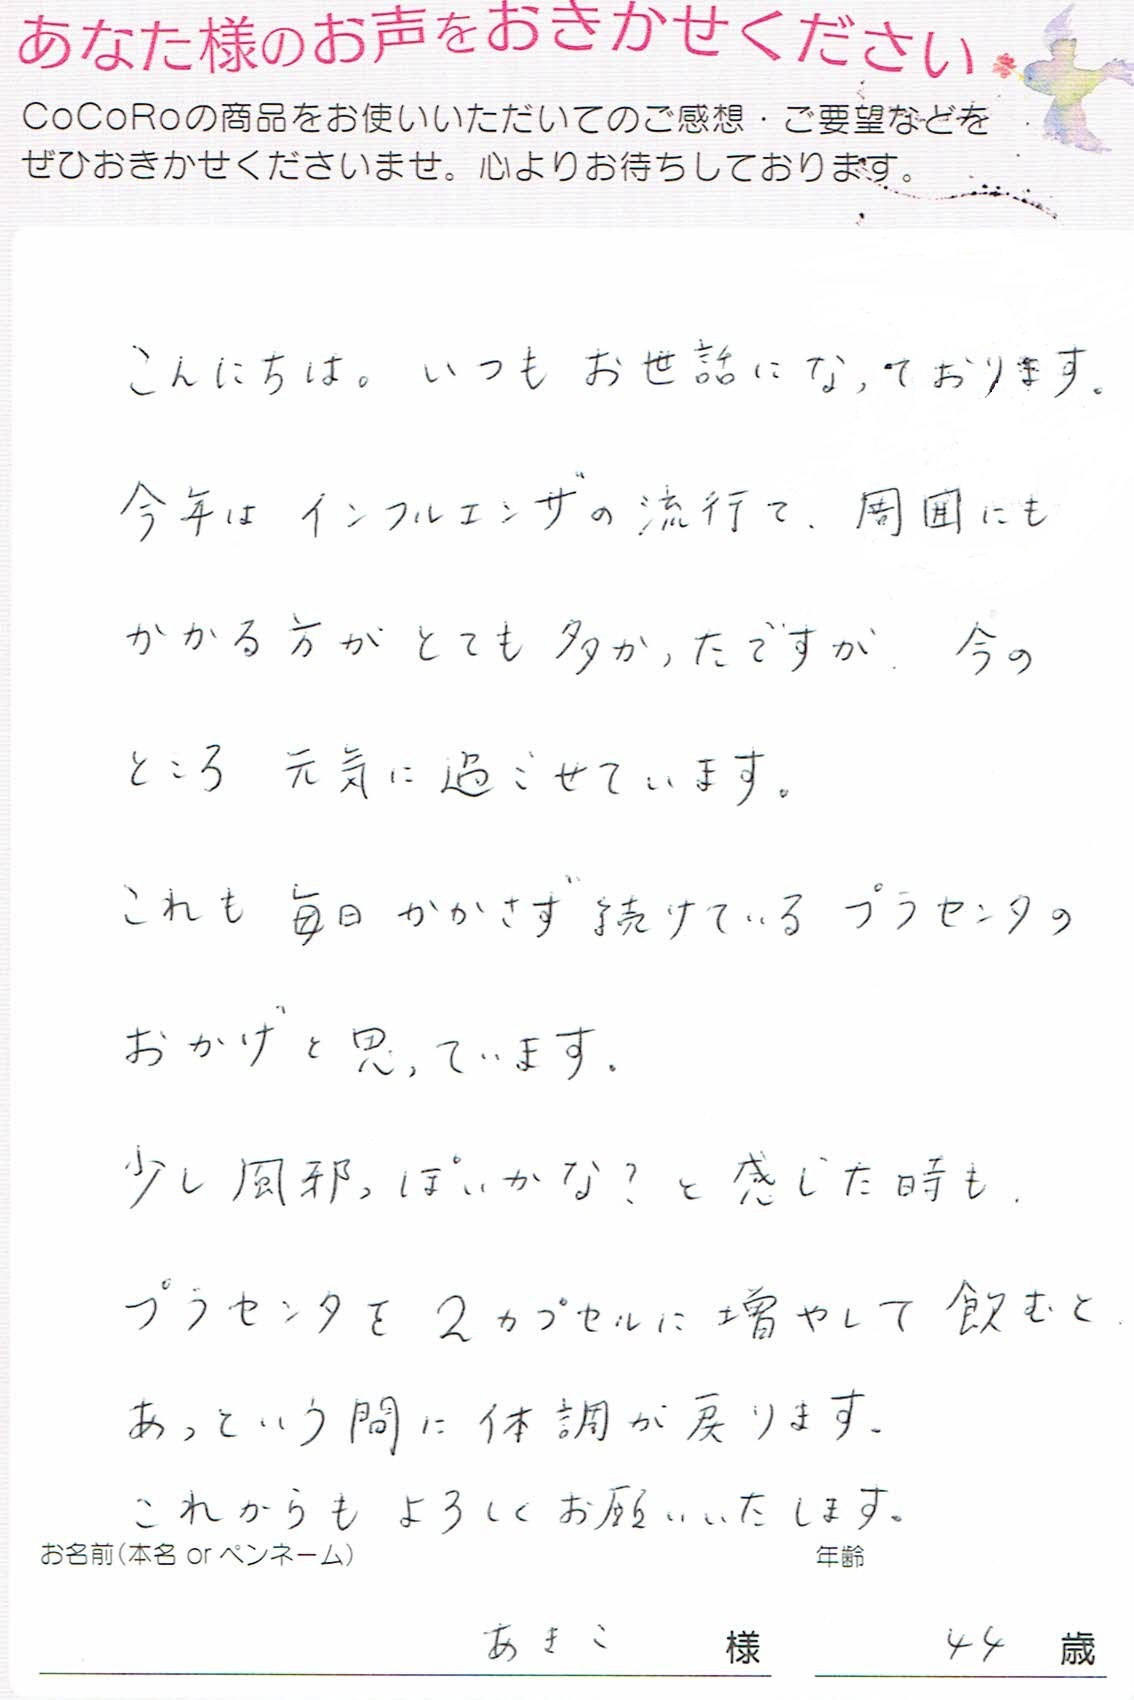 あなた様のお声をおきかせください
CoCoRoの商品をお使いいただいてのご感想・ご要望などを
ぜひおきかせくださいませ。心よりお待ちしております。
こんにちは。いつも お世話になっております。
今年は インフルエンザの流行で、周囲にも
かかる方が とても 多かったですが、今の
ところ 元気に過ごせています。
これも 毎日かかさず続けている プラセンタの
おかげと思っています。
少し風邪っぽいかな?と感じた時も、
プラセンタを 2カプセルに増やして飲むと、
あっという間に体調が戻ります。
これからも よろしくお願いいたします。
お名前(本名 or ペンネーム) 年齢
あきこ 様 44 歳